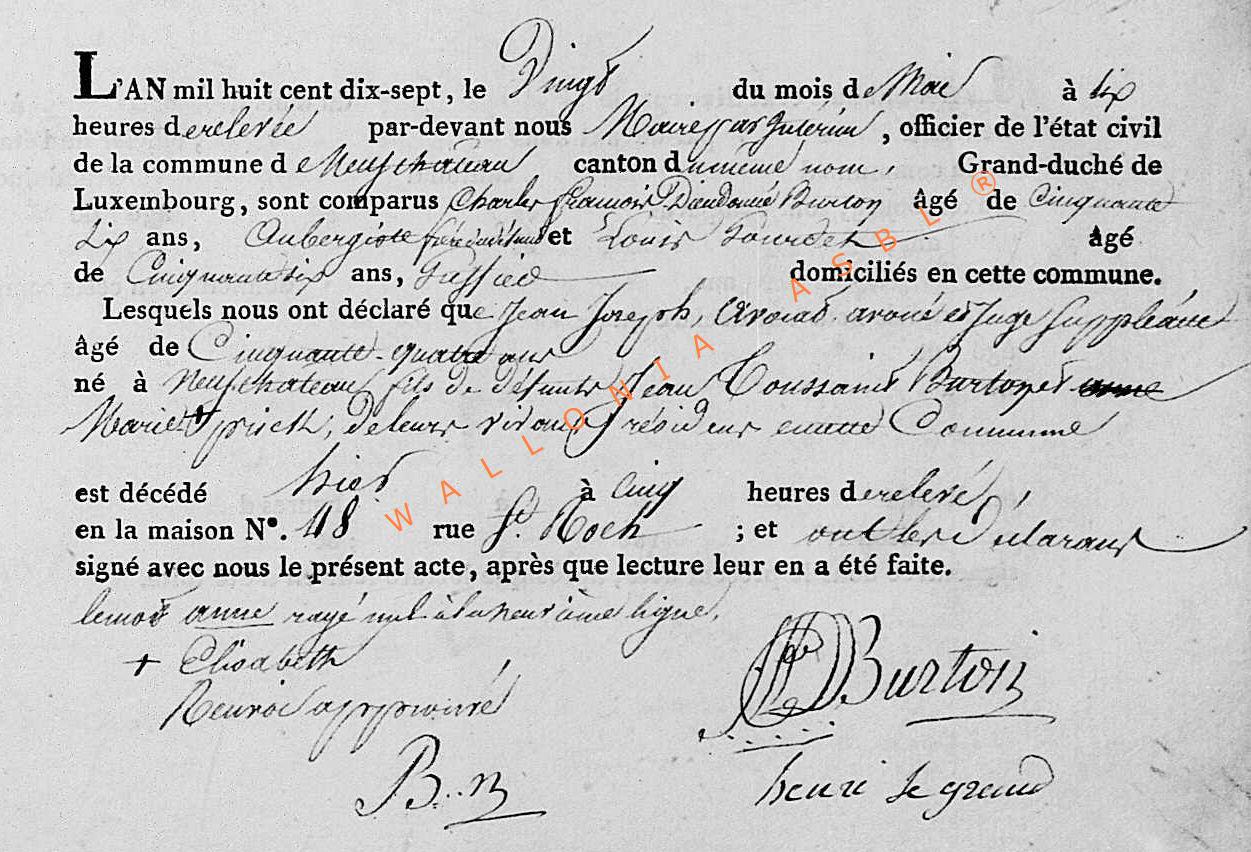 L'AN mil huit cent dix-sept, le Vingt du mois de Mai à six
heures de relevée par-devant nous Maire par Interim, officier de l'état civil
de la commune de Neufchateau canton du même nom, Grand-duché de
Luxembourg, sont comparus Charles François Dieudonné Burton âgé de Cinquante
six ans, Aubergiste frère du défunt et Louis âgé
de Cinquante six ans, domiciliés en cette commune.
Lesquels nous ont déclaré que Jean Joseph, Avocat avoué et Juge Suppléant
âgé de Cinquante-quatre ans
né à Neufchateau fils de défunts Jean Toussaint Burton et anne
Marie + de leurs vivans résideur en cette Commune
est décédé hier à cinq heures de relevée,
en la maison N°. 48 rue St. Roch ; et ont les déclarans
signé avec nous le présent acte, après que lecture leur en a été faite.
le mot anne rayé nul à la neuvième ligne,
+ Elisabeth
Renvoi approuvé
B..n
Burton
henri le grand
WALLONIA ASBL ®